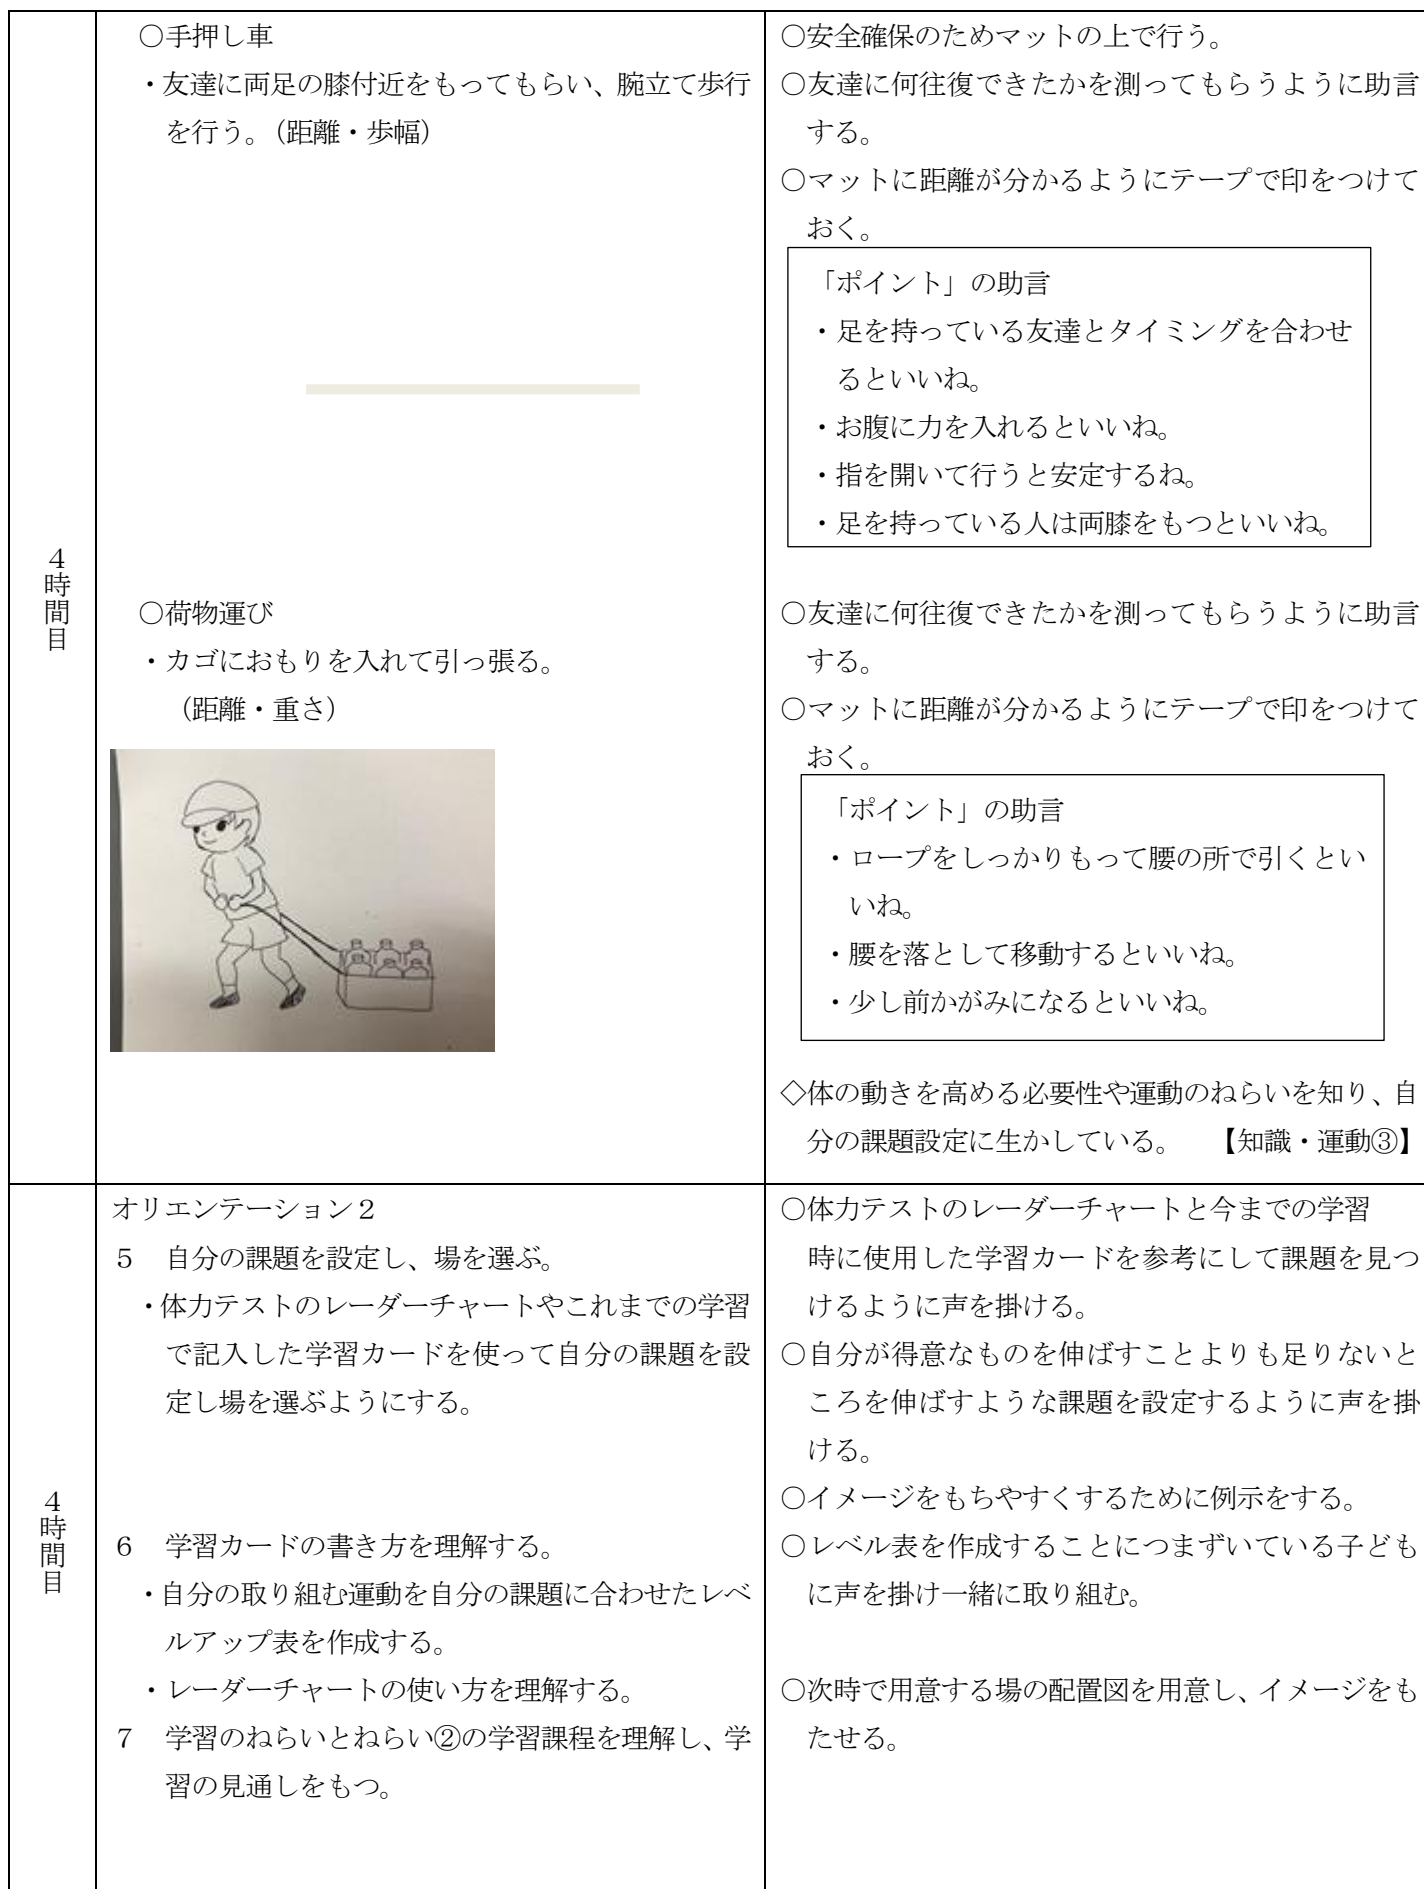 4時間目
○手押し車
・友達に両足の膝付近をもってもらい、腕立て歩行
を行う。（距離・歩幅）
○荷物運び
・カゴにおもりを入れて引っ張る。
（距離・重さ）
○安全確保のためマットの上で行う。
○友達に何往復できたかを測ってもらうように助言
する。
○マットに距離が分かるようにテープで印をつけて
おく。
「ポイント」の助言
・足を持っている友達とタイミングを合わせ
るといいね。
・お腹に力を入れるといいね。
・指を開いて行うと安定するね。
・足を持っている人は両膝をもつといいね。
○友達に何往復できたかを測ってもらうように助言
する。
○マットに距離が分かるようにテープで印をつけて
おく。
「ポイント」の助言
・ロープをしっかりもって腰の所で引くとい
いね。
・腰を落として移動するといいね。
・少し前かがみになるといいね。
◇体の動きを高める必要性や運動のねらいを知り、自
分の課題設定に生かしている。　【知識・運動③】
4時間目
オリエンテーション２
５　自分の課題を設定し、場を選ぶ。
・体力テストのレーダーチャートやこれまでの学習
で記入した学習カードを使って自分の課題を設
定し場を選ぶようにする。
６　学習カードの書き方を理解する。
・自分の取り組む運動を自分の課題に合わせたレベ
ルアップ表を作成する。
・レーダーチャートの使い方を理解する。
７　学習のねらいとねらい②の学習課程を理解し、学
習の見通しをもつ。
○体力テストのレーダーチャートと今までの学習
時に使用した学習カードを参考にして課題を見つ
けるように声を掛ける。
○自分が得意なものを伸ばすことよりも足りないと
ころを伸ばすような課題を設定するように声を掛
ける。
○イメージをもちやすくするために例示をする。
○レベル表を作成することにつまずいている子ども
に声を掛け一緒に取り組む。
○次時で用意する場の配置図を用意し、イメージをも
たせる。